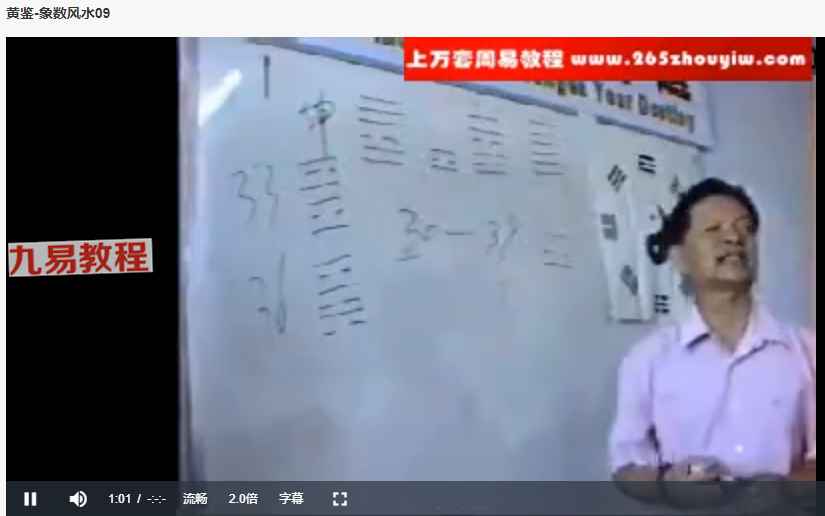 黄鉴-象数风水09
上万套周易教程 www.265zhouyiw.com
Your Destiny
坤
33
30-39
36
九易教程
1:01 / -:-:-
流畅
2.0倍
字幕